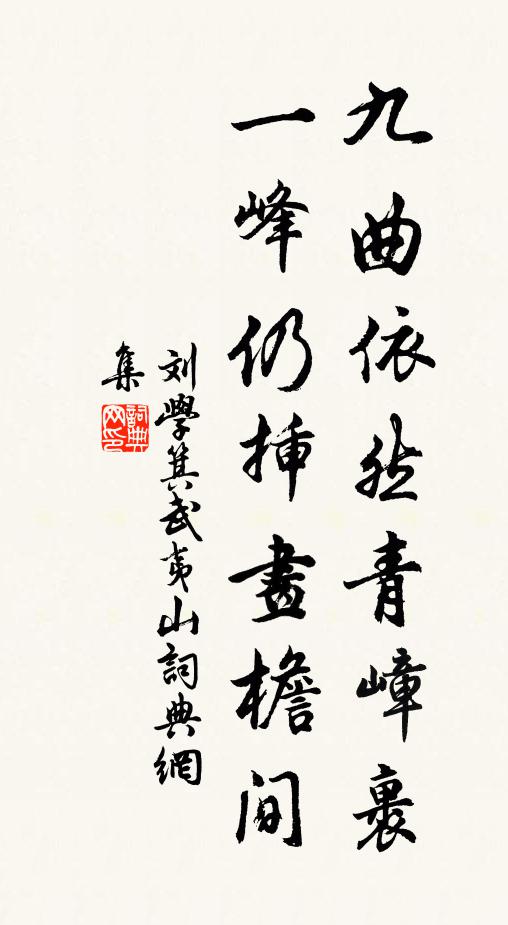 九曲依然青嶂裹
一峰仍挿畫檐間
刘學箕武夷山詞典網
集
詞典
网印